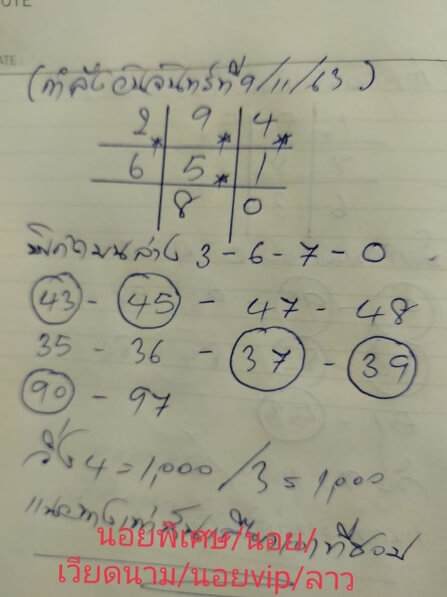 (กำลังวันจันทร์ที่9/11/63)
2 * 9 * 4 *
6 5 * 1
8 0
บน ล่าง 3-6-7-0
43 - 45 - 47 - 48
35 - 36 - 37 - 39
90 - 97
วิ่ง 4 = 1,000 / 3 = 1,000
แนวทางเท่านั้น ที่ชอบ
นอยพิเศษ/นอย/
เวียดนาม/นอยvip/ลาว